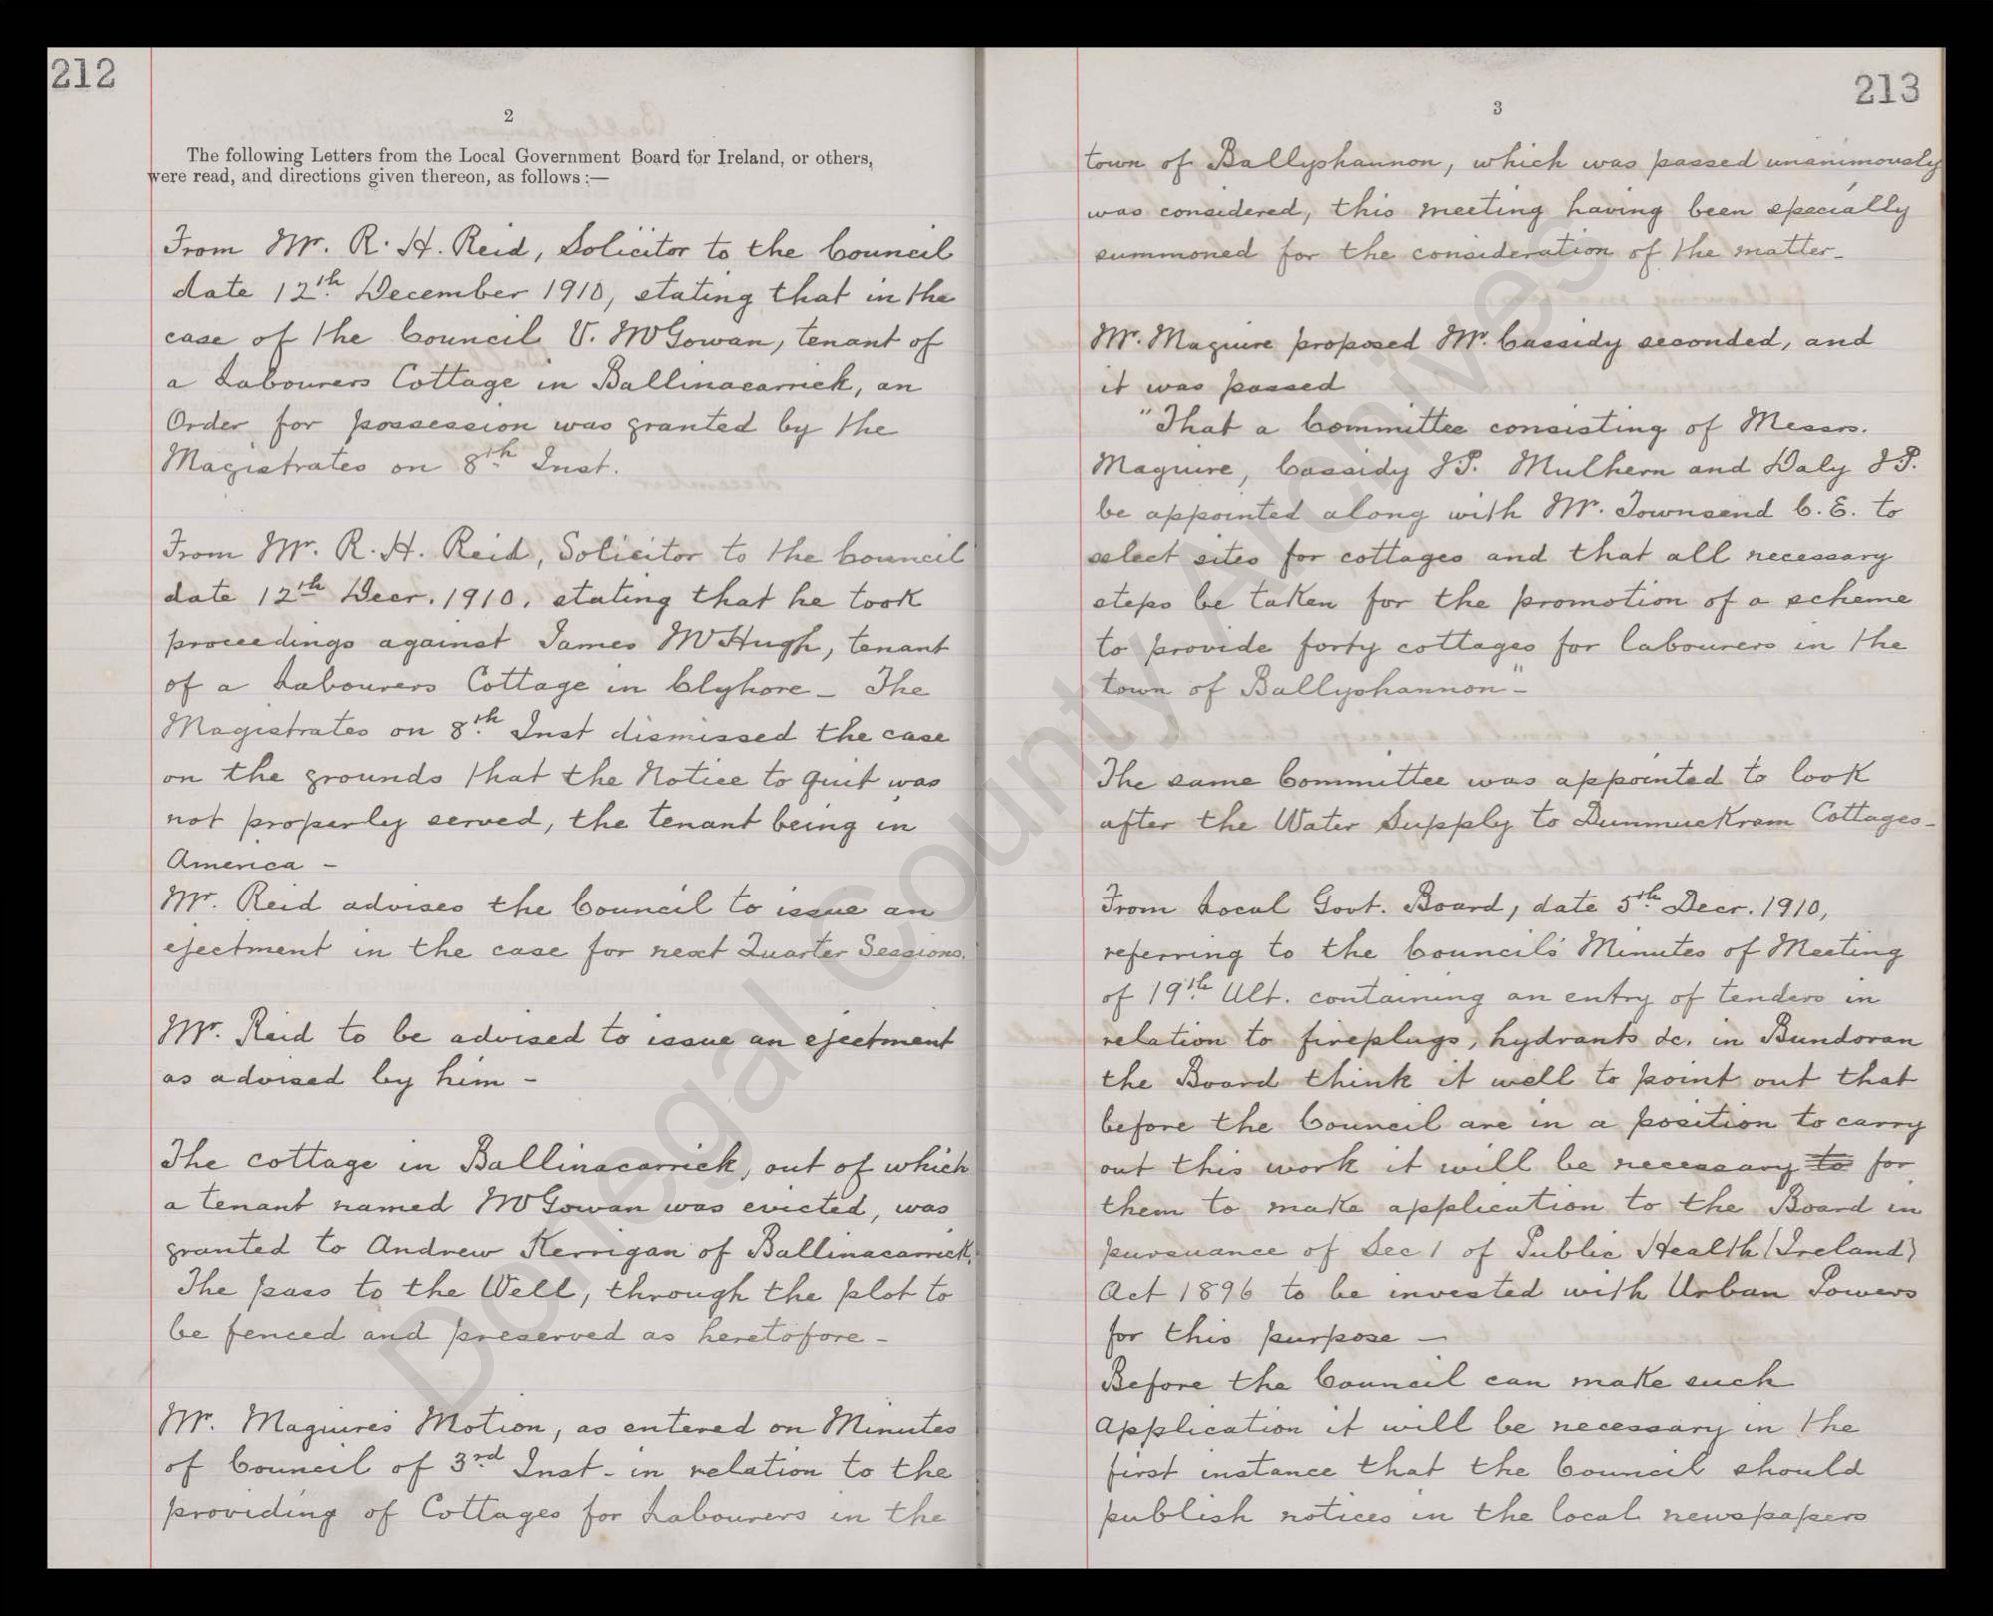 212
2
The following Letters from the Local Government Board for Ireland, or others,
were read, and directions given thereon, as follows :—
From Mr. R. H. Reid, Solicitor to the Council
date 12th December 1910, stating that in the
case of the Council V. McGowan, tenant of
a Labourers Cottage in Ballinacarrick, an
Order for possession was granted by the
Magistrates on 8th Inst.
From Mr. R. H. Reid, Solicitor to the Council
date 12th Decr. 1910, stating that he took
proceedings against James McHugh, tenant
of a Labourers Cottage in Clyhore - The
Magistrates on 8th Inst dismissed the case
on the grounds that the Notice to quit was
not properly served, the tenant being in
America -
Mr. Reid advises the Council to issue an
ejectment in the case for next Quarter Sessions.
Mr. Reid to be advised to issue an ejectment
as advised by him -
The cottage in Ballinacarrick, out of which
a tenant named McGowan was evicted, was
granted to Andrew Kerrigan of Ballinacarrick.
The pass to the Well, through the plot to
be fenced and preserved as heretofore -
Mr. Maguires Motion, as entered on Minutes
of Council of 3rd Inst - in relation to the
providing of Cottages for Labourers in the
213
3
town of Ballyshannon, which was passed unanimously
was considered, this meeting having been specially
summoned for the consideration of the matter -
Mr. Maguire proposed Mr. Cassidy seconded, and
it was passed
"That a Committee consisting of Messrs.
Maguire, Cassidy J.P. Mulhern and Daly J.P.
be appointed along with Mr. Townsend C.E. to
select sites for cottages and that all necessary
steps be taken for the promotion of a scheme
to provide forty cottages for labourers in the
town of Ballyshannon" -
The same Committee was appointed to look
after the Water Supply to Dunmuckrum Cottages -
From Local Govt. Board, date 5th Decr. 1910,
referring to the Council's Minutes of Meeting
of 19th Ult. containing an entry of tenders in
relation to fireplugs, hydrants &c. in Bundoran
the Board think it well to point out that
before the Council are in a position to carry
out this work it will be necessary to for
them to make application to the Board in
pursuance of Sec 1 of Public Health (Ireland)
Act 1896 to be invested with Urban Powers
for this purpose -
Before the Council can make such
application it will be necessary in the
first instance that the Council should
publish notices in the local newspapers
Donegal County Archives